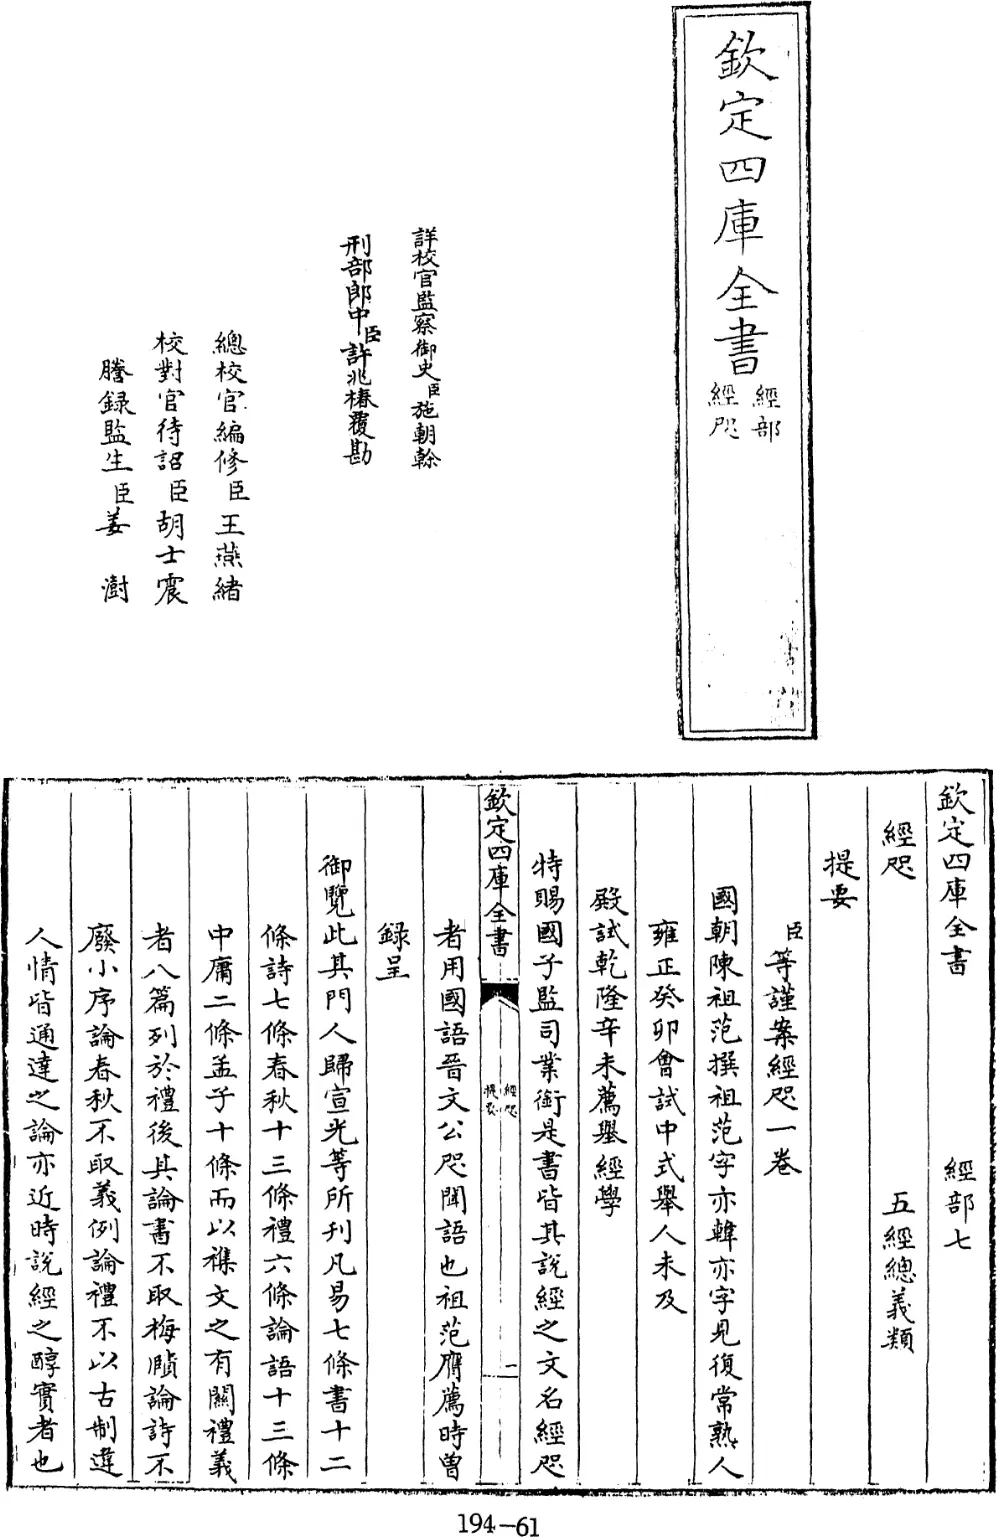 欽定四庫全書
經部
經咫
詳校官監察御史臣施朝榦
刑部郎中臣許兆椿覆勘
總校官編修臣王燕緒
校對官待詔臣胡士震
謄錄監生臣姜澍
欽定四庫全書 經部七
經咫 五經總義類
提要
臣等謹案經咫一卷
國朝陳祖范撰祖范字亦韓亦字見復常熟人
雍正癸卯會試中式舉人未及
殿試乾隆辛未薦舉經學
特賜國子監司業銜是書皆其說經之文名經咫
欽定四庫全書
經咫
提要
一
者用國語晉文公咫聞語也祖范膺薦時曾
錄呈
御覽此其門人歸宣光等所刊凡易七條書十二
條詩七條春秋十三條禮六條論語十三條
中庸二條孟子十條而以襍文之有關禮義
者八篇列於禮後其論書不取梅賾論詩不
廢小序論春秋不取義例論禮不以古制違
人情皆通達之論亦近時說經之醇實者也
194-61